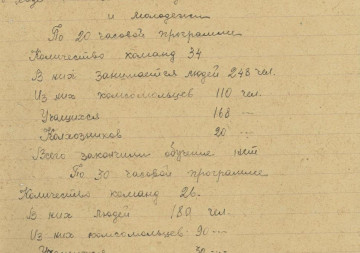 и молодежи
По 20 часовой программе
Количество команд 34
В них занимается людей 248 чел.
Из них комсомольцев 110 чел.
Учащихся 168 —"—
Колхозников 20 —"—
Всего закончили обучение нет
По 30 часовой программе
Количество команд 26.
В них людей 180 чел.
Из них комсомольцев 90 —"—